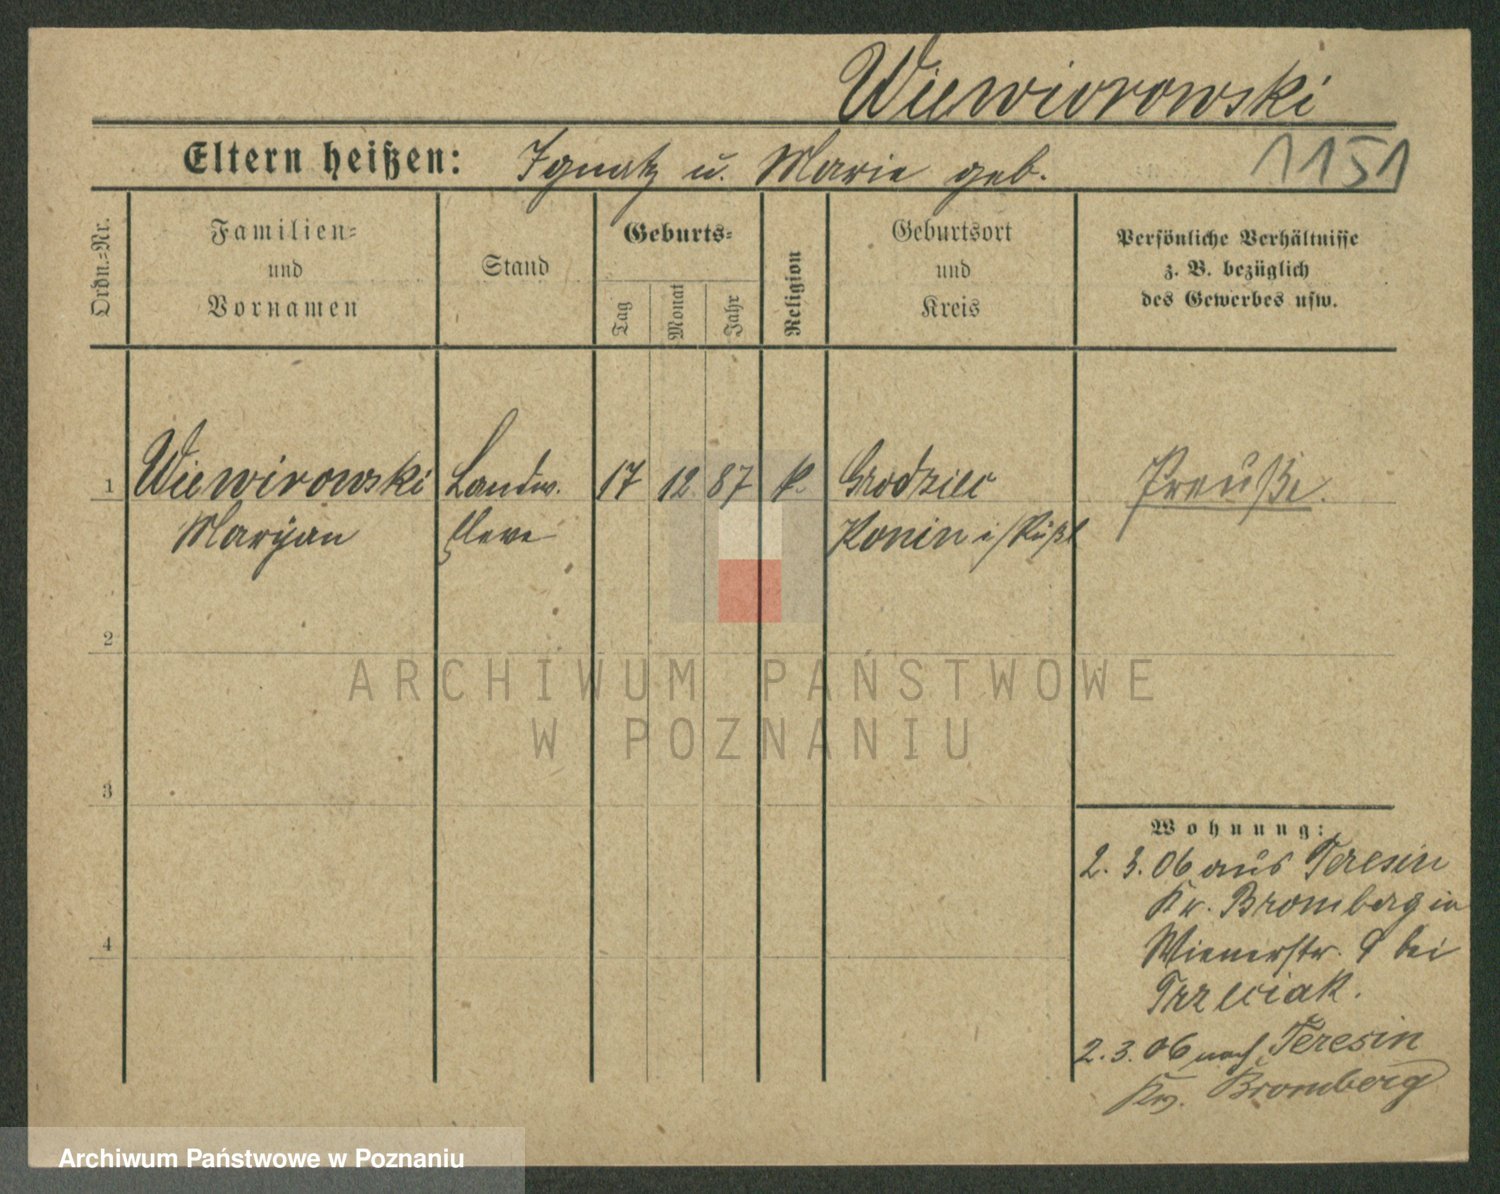 Wiewiorowski
Eltern heißen: Ignatz u. Marie geb.
1151
Ordn.-Nr.
Familien-
und
Vornamen
Stand
Geburts-
Tag
Monat
Jahr
Religion
Geburtsort
und
Kreis
Persönliche Verhältnisse
z. B. bezüglich
des Gewerbes usw.
1 Wiewirowski Landw. 17 12 87 k. Grodziec Preuße.
Maryan Eleve Konin i/Rußl
2
ARCHIWUM PAŃSTWOWE
W POZNANIU
3
4
Wohnung:
2. 3. 06 aus Teresin
Kr. Bromberg in
Wienerstr. 9 bei
Trzeciak.
2. 3. 06 nach Teresin
Krs. Bromberg
Archiwum Państwowe w Poznaniu